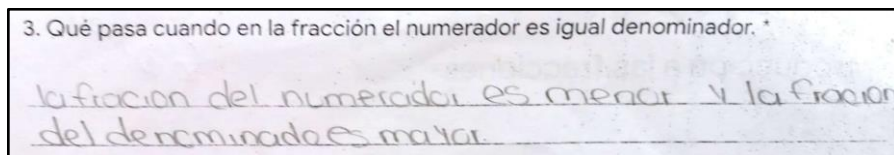 3. Qué pasa cuando en la fracción el numerador es igual denominador. *
la fracion del numerador es menor y la fracion
del denominado es mayor